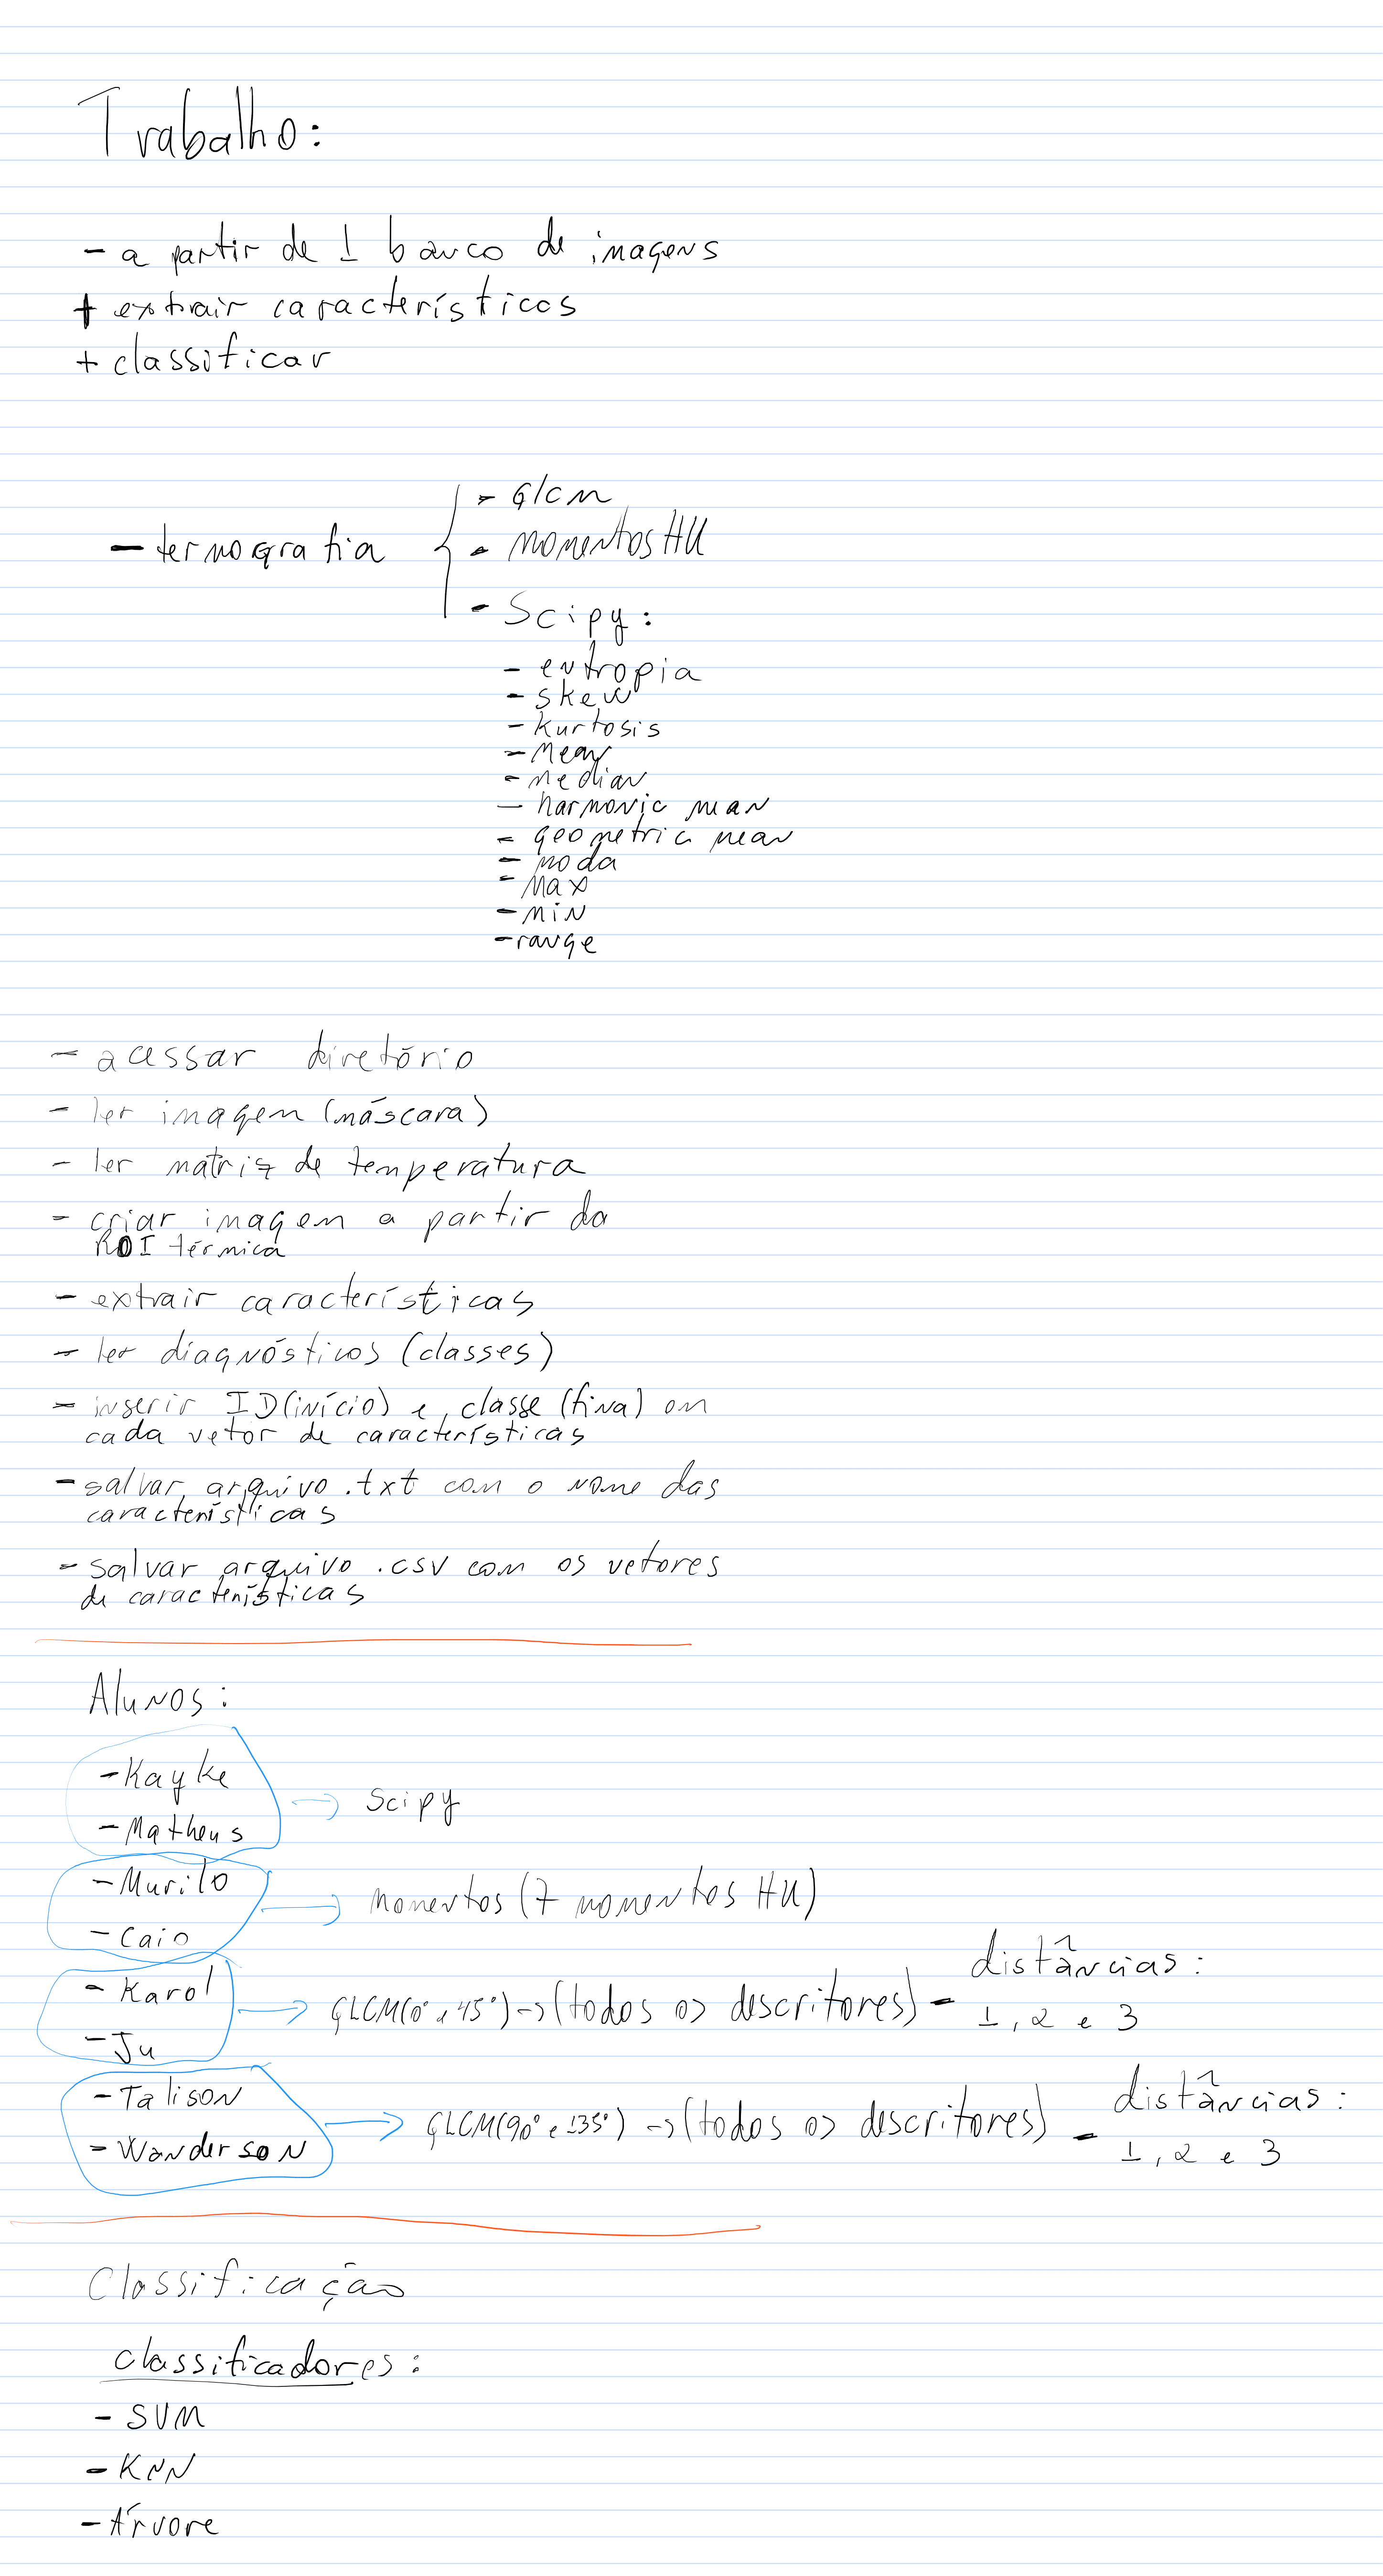 Trabalho:
- a partir de 1 banco de imagens
+ extrair característicos
+ classificar
- termografia
- GlCM
- momentos HU
- Scipy:
- entropia
- skew
- kurtosis
- Mean
- median
- harmonic mean
- geometric mean
- moda
- Max
- min
- range
- acessar diretório
- ler imagem (máscara)
- ler matriz de temperatura
- criar imagem a partir da
ROI térmica
- extrair características
- ler diagnósticos (classes)
- inserir ID (início) e classe (final) em
cada vetor de características
- salvar arquivo .txt com o nome das
características
- salvar arquivo .csv com os vetores
de características
Alunos:
- Kayke
- Matheus
→ Scipy
- Murilo
- Caio
→ Momentos (7 momentos HU)
- Karol
- Ju
→ GLCM(0° e 45°) -> (todos os descritores) - distâncias:
1, 2 e 3
- Talison
- Wanderson
→ GLCM(90° e 135°) -> (todos os descritores) - distâncias:
1, 2 e 3
Classificação
classificadores:
- SVM
- KNN
- Árvore